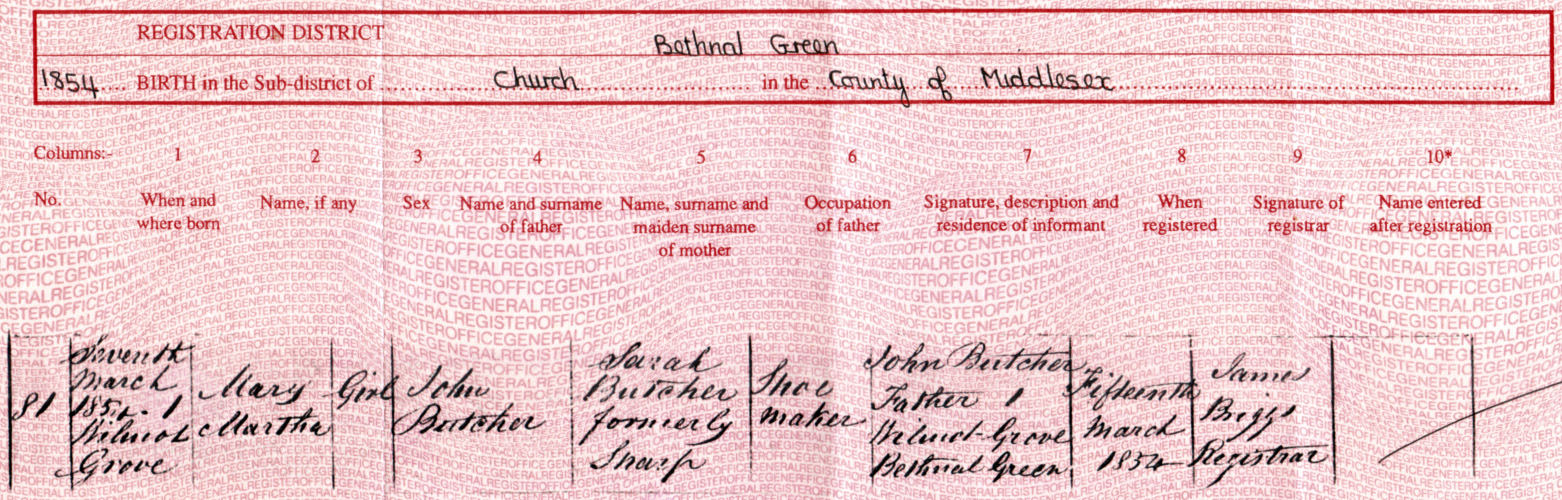 REGISTRATION DISTRICT Bethnal Green
1854 BIRTH in the Sub-district of Church in the County of Middlesex
Columns:- 1 2 3 4 5 6 7 8 9 10*
No. When and where born Name, if any Sex Name and surname of father Name, surname and maiden surname of mother Occupation of father Signature, description and residence of informant When registered Signature of registrar Name entered after registration
81
Seventh
March
1854. 1
Wilmot
Grove
Mary
Martha
Girl
John
Butcher
Sarah
Butcher
formerly
Sharp
Shoe
maker
John Butcher
Father 1
Wilmot Grove
Bethnal Green
Fifteenth
March
1854
James
Briggs
Registrar